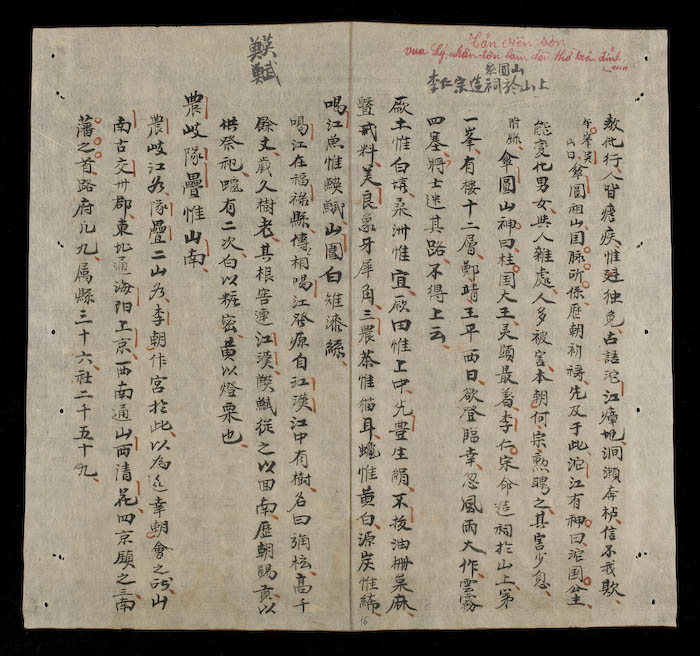 Tản Viên Sơn
vua Lý-nhân-tôn làm đền thờ trên đỉnh núi
傘圓山
李仁宗造祠於山上
教他行人皆瘧疾惟廷独免古語沱江瘴地洞瀨奔栌信不我欺
傘圓祖山国脉所係歷朝祈禱先及于此沱江有神曰沱国公主
能変化男女與人雜處人多被害本朝何宗勲聘之其害少息
傘圓山神曰柱国大王灵顕最着李仁宗命造祠於山上第
一峯有楼十二層鄭靖王平西日欲登臨幸忽風雨大作雲霧
四塞將士迷其路不得上云
厥土惟白壤桑洲惟宜厥田惟上中先豊生絹不扳油柵桑麻
暨貳料美良象牙犀角三農茶惟猫耳蠟惟黄白源炭惟締
喝江魚惟䱭䱾山圍白雉漆絲
喝江在福祿縣傳相喝江發源自江漢江中有樹名曰弹枟高千
餘丈歲久樹老其根害連江漢䱭䱾従之以回南歷朝賜貢以
供祭祀蠟有二次白以粧密黄以燈栗也
農岐隊疊惟山南
農岐江名隊疊二山名李朝作宮於此以為近幸朝會之所山
南古交州郡東北通海阳上京西南通山西清花四京願之三南
藩之首路府凡九属縣三十六社二千五十九
䱭
䱾
16